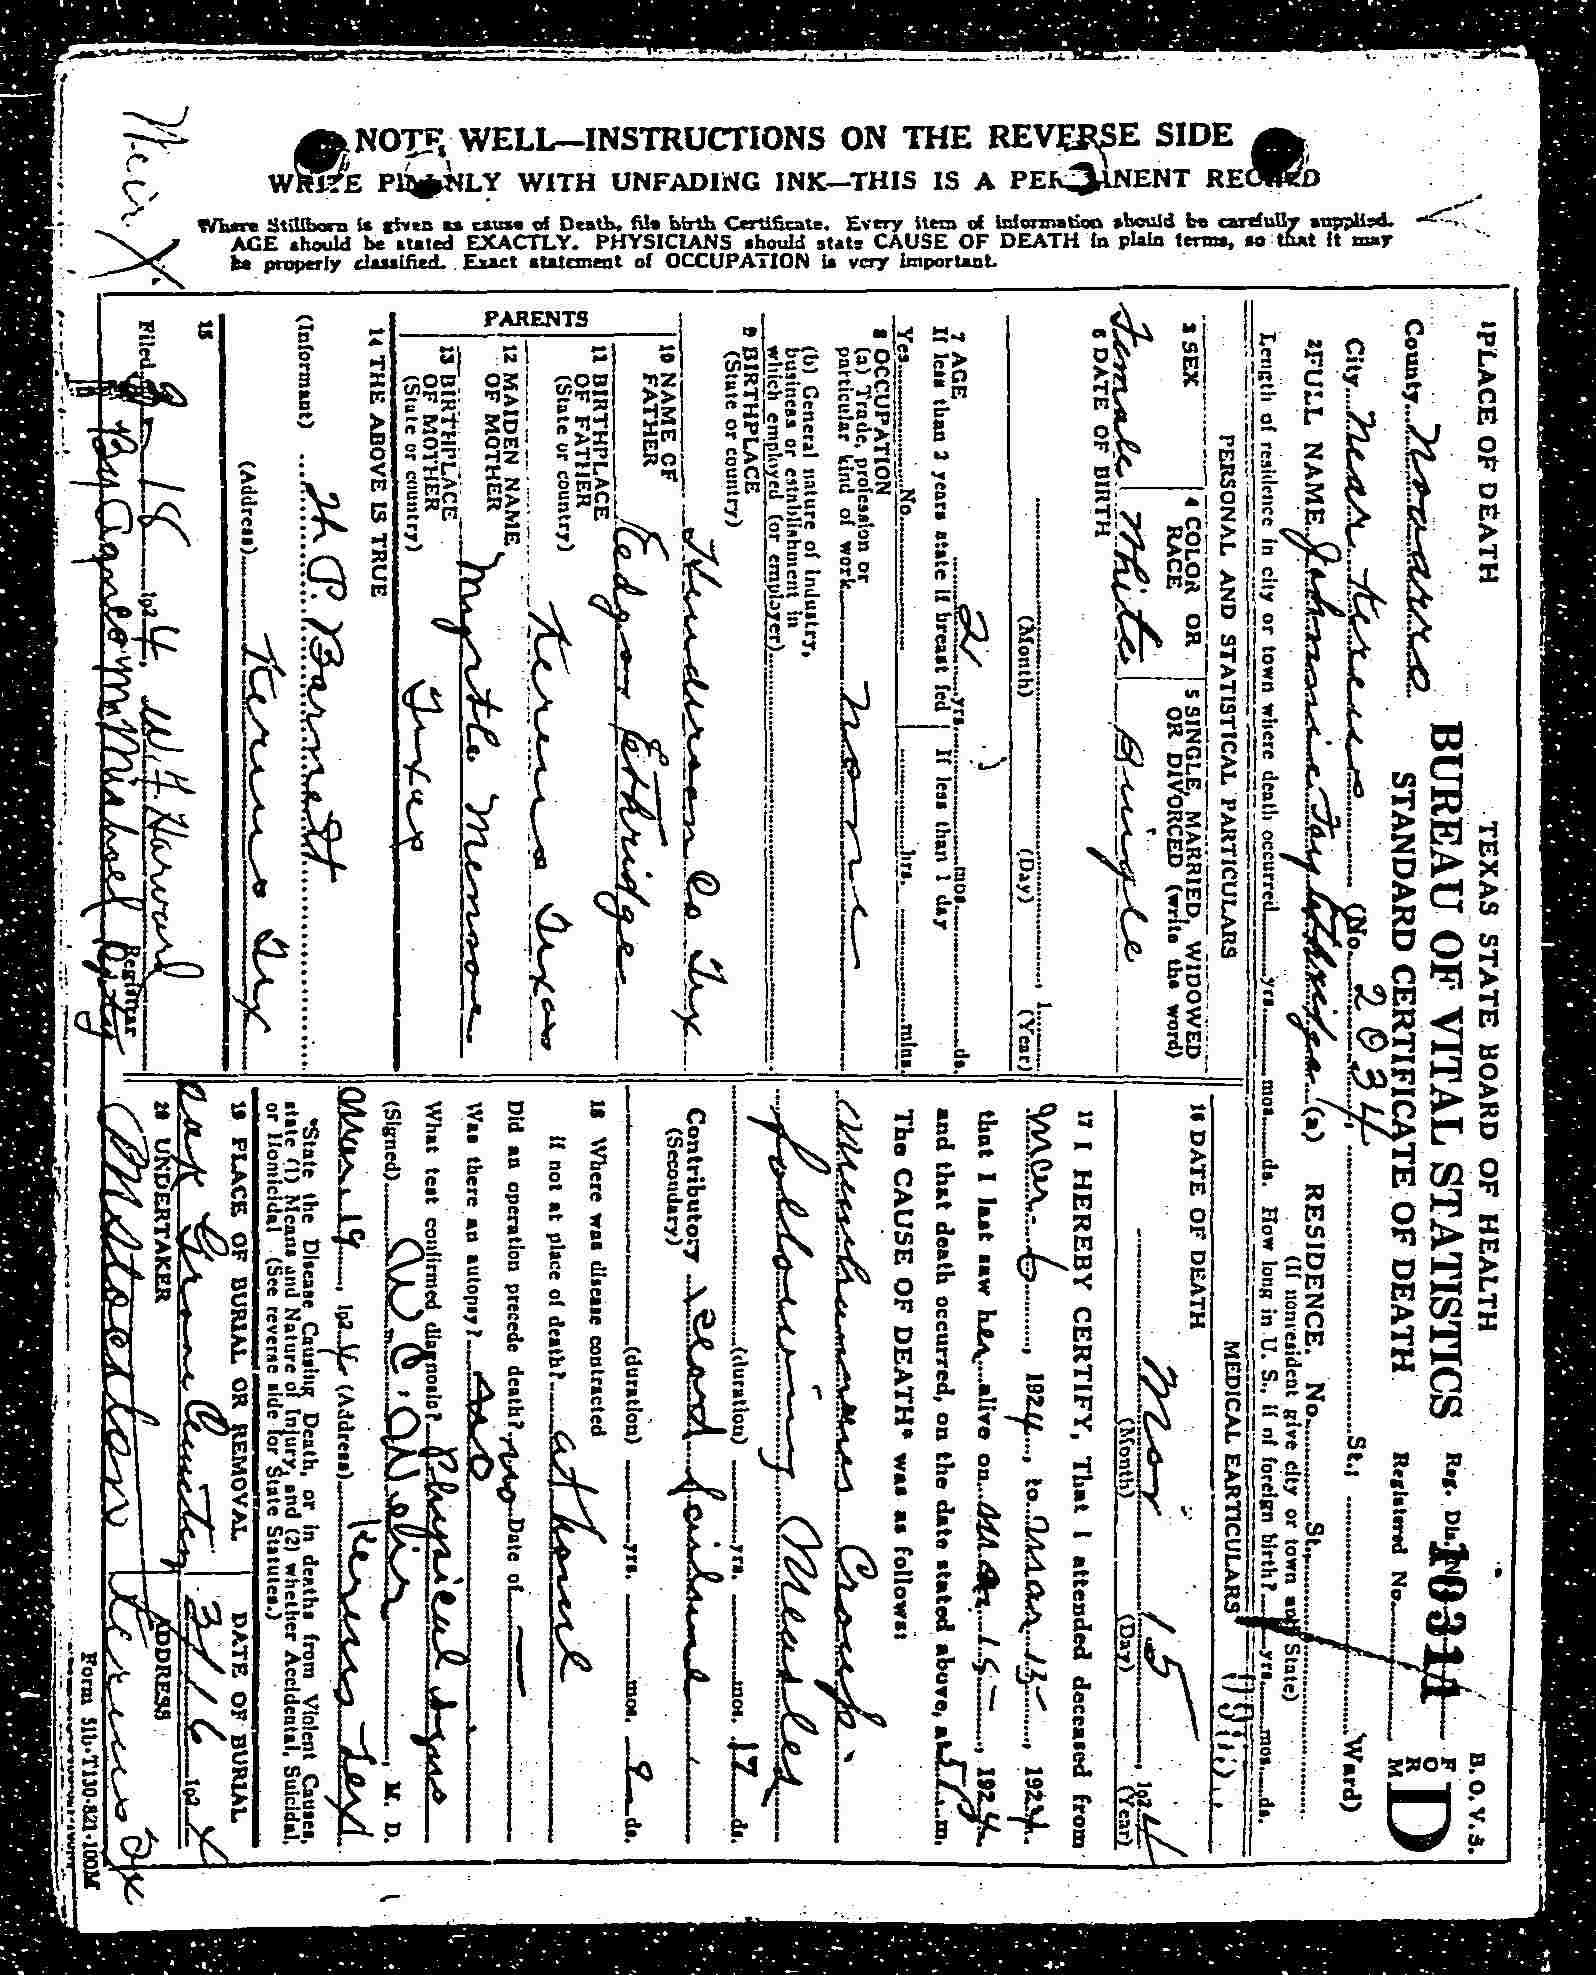 NOTE WELL—INSTRUCTIONS ON THE REVERSE SIDE
WRITE PLAINLY WITH UNFADING INK—THIS IS A PERMANENT RECORD
Where Stillborn is given as cause of Death, file birth Certificate. Every item of information should be carefully supplied.
AGE should be stated EXACTLY. PHYSICIANS should state CAUSE OF DEATH in plain terms, so that it may
be properly classified. Exact statement of OCCUPATION is very important.
Weir X.
TEXAS STATE BOARD OF HEALTH
B. O. V. S.
FORM D
BUREAU OF VITAL STATISTICS
STANDARD CERTIFICATE OF DEATH
Reg. Dis. No. 10311
Registered No.
1 PLACE OF DEATH
County Navarro
City Near Kerens (No. 2034, St.; Ward)
2 FULL NAME Johnnie Fay Ethridge (a) RESIDENCE. No. St.,
(If nonresident give city or town and State)
Length of residence in city or town where death occurred yrs. mos. ds. How long in U. S., if of foreign birth? yrs. mos. ds.
PERSONAL AND STATISTICAL PARTICULARS
3 SEX
Female
4 COLOR OR RACE
White
5 SINGLE, MARRIED, WIDOWED OR DIVORCED (write the word)
Single
6 DATE OF BIRTH
(Month) (Day) 1 (Year)
7 AGE 2 yrs. mos. ds.
If less than 2 years state if breast fed If less than 1 day
Yes No hrs. mins.
8 OCCUPATION
(a) Trade, profession or
particular kind of work None
(b) General nature of industry,
business or establishment in
which employed (or employer)
9 BIRTHPLACE
(State or country) Henderson Co Tex
PARENTS
10 NAME OF FATHER Edgar Ethridge
11 BIRTHPLACE OF FATHER
(State or country) Kerens Texas
12 MAIDEN NAME OF MOTHER Myrtle
13 BIRTHPLACE OF MOTHER
(State or country) Texas
14 THE ABOVE IS TRUE
(Informant) H P. Barnett
(Address) Kerens Tex
15
Filed 18 192 4, W. H. Harvard
Registrar
By Agnes Dpty
MEDICAL PARTICULARS
16 DATE OF DEATH
Mar 15 192 4
(Month) (Day) (Year)
17 I HEREBY CERTIFY, That I attended deceased from
Mar 6, 1924, to Mar 15, 1924.
that I last saw her alive on Mar 15, 1924
and that death occurred, on the date stated above, at 5 P.m.
The CAUSE OF DEATH* was as follows:
Membraneous Croup
following Measles
(duration) yrs. mos. 17 ds.
Contributory Heart failure
(Secondary)
(duration) yrs. mos. 9 ds.
18 Where was disease contracted
if not at place of death? at home
Did an operation precede death? no Date of —
Was there an autopsy? no
What test confirmed diagnosis? Physical signs
(Signed) W. C. Weir, M. D.
Mar. 19, 192 4 (Address) Kerens Tex
*State the Disease Causing Death, or in deaths from Violent Causes,
state (1) Means and Nature of Injury, and (2) whether Accidental, Suicidal,
or Homicidal (See reverse side for State Statutes.)
19 PLACE OF BURIAL OR REMOVAL
Oak Grove Cemetery
DATE OF BURIAL
3/16 192 4
20 UNDERTAKER
ADDRESS
Kerens Tex
Form 511-T130-821-100M